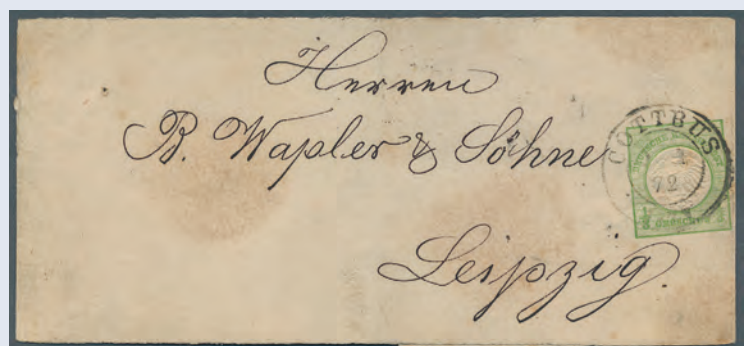 Herren
B. Wapler & Söhne
Leipzig.
COTTBUS
72